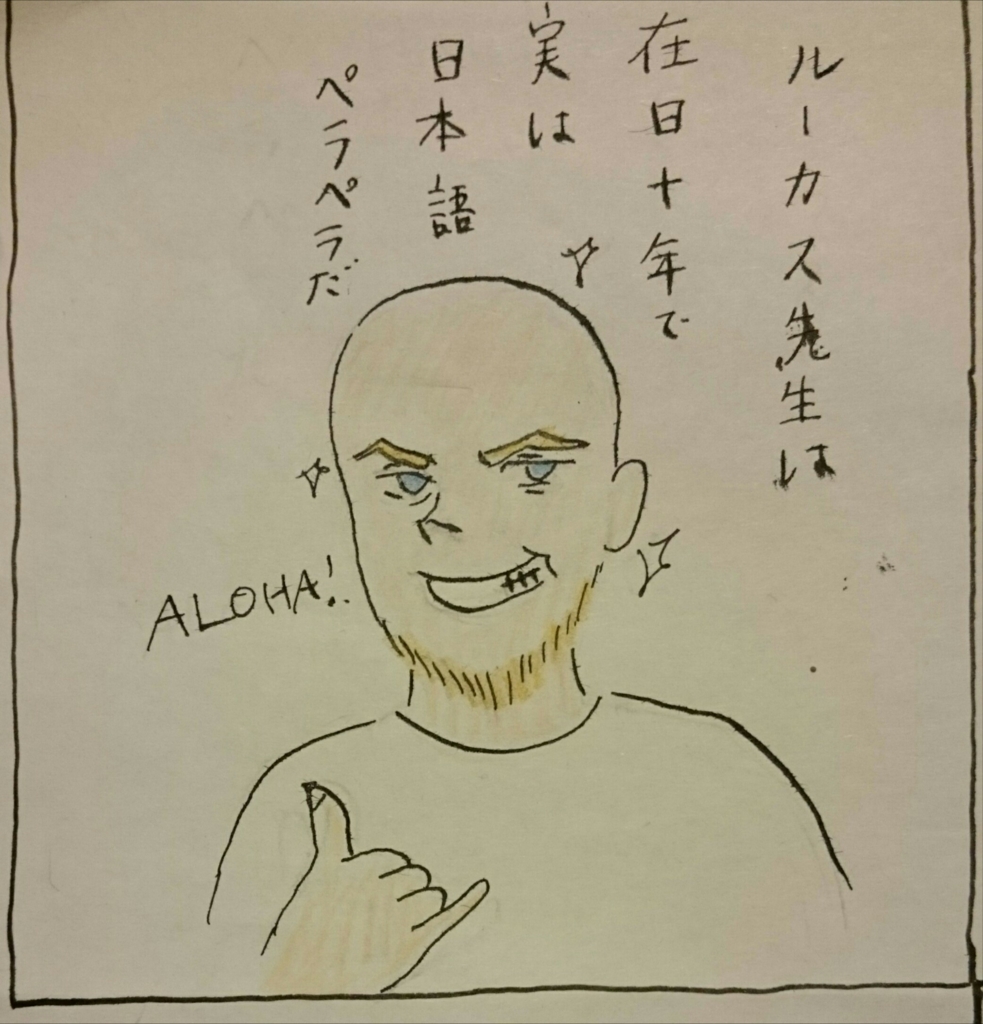 ルーカス先生は
在日十年で
実は
日本語
ペラペラだ
ALOHA!